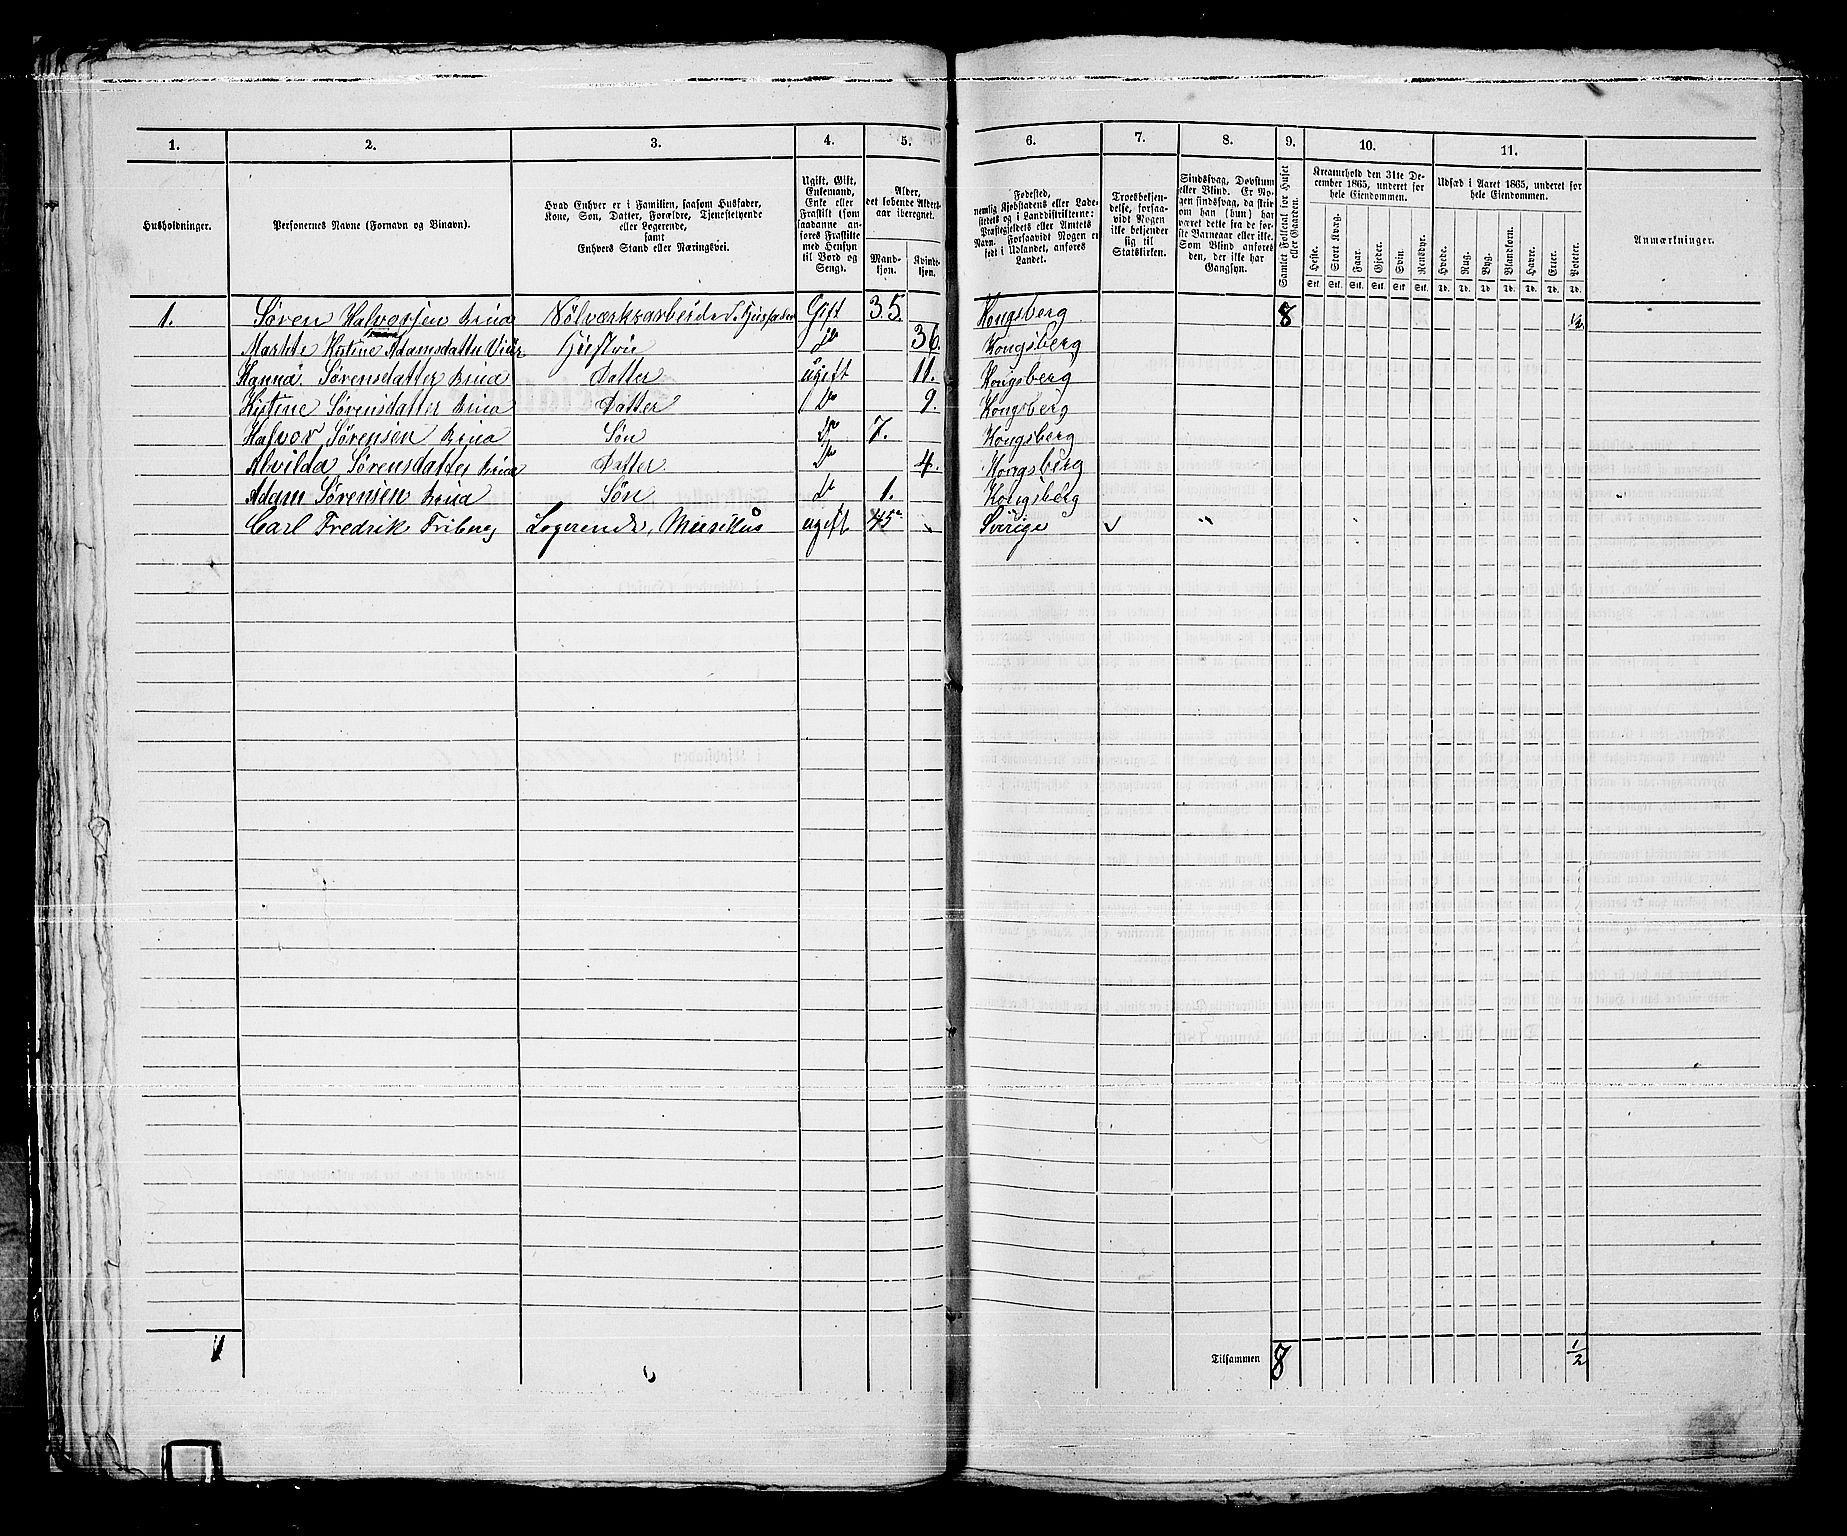 1. 2. 3. 4. 5. 6. 7. 8. 9. 10. 11.
Husholdninger.
Personernes Navne (Fornavn og Binavn).
Hvad Enhver er i Familien, saasom Husfader,
Kone, Søn, Datter, Forældre, Tjenestetyende
eller Logerende,
samt
Enhvers Stand eller Næringsvei.
Ugift, Gift,
Enkemand,
Enke eller
Fraskilt (som
saadanne an-
føres Fraskilte
med Hensyn
til Bord og
Seng).
Alder,
det løbende Alders-
aar iberegnet.
Mand-
kjøn.
Kvinde-
kjøn.
Fødested,
nemlig Kjøbstadens eller Lade-
stedets og i Landdistrikterne:
Præstegjeldets eller Amtets
Navn. Forsaavidt Nogen er
født i Udlandet, anføres
Landet.
Troesbekjen-
delse, forsaa-
vidt Nogen
ikke bekjender
sig til
Statskirken.
Sindssvag, Døvstum
eller Blind. Er No-
gen sindssvag, da skriv
om han (hun) har
været dette fra de før-
ste Barneaar eller ikke.
Som Blind anføres
den, der ikke har
Gangsyn.
Samlet Folketal for Huset
eller Gaarden.
Kreaturhold den 31te De-
cember 1865, underet for
hele Eiendommen.
Heste. Stort Kvæg. Faar. Gjeder. Svin. Rensdyr.
Stk. Stk. Stk. Stk. Stk. Stk.
Udsæd i Aaret 1865, underet for
hele Eiendommen.
Hvede. Rug. Byg. Blandkorn. Havre. Erter. Poteter.
Td. Td. Td. Td. Td. Td. Td.
Anmærkninger.
1. Søren Halvorsen Brua Sølværksarbeider, Husfader Gift 35. Kongsberg 8 ½
Marthe Kistine Adamsdatter Hustru Do 36. Kongsberg
Hanna Sørensdatter Brua Datter ugift 11. Kongsberg
Kistine Sørensdatter Brua Datter Do 9. Kongsberg
Halvor Sørensen Brua Søn Do 7. Kongsberg
Alvilda Sørensdatter Brua Datter Do 4. Kongsberg
Adam Sørensen Brua Søn Do 1. Kongsberg
Carl Fredrik Friberg Logerende, Musikus ugift 45 Sverige
1 Tilsammen 8 ½